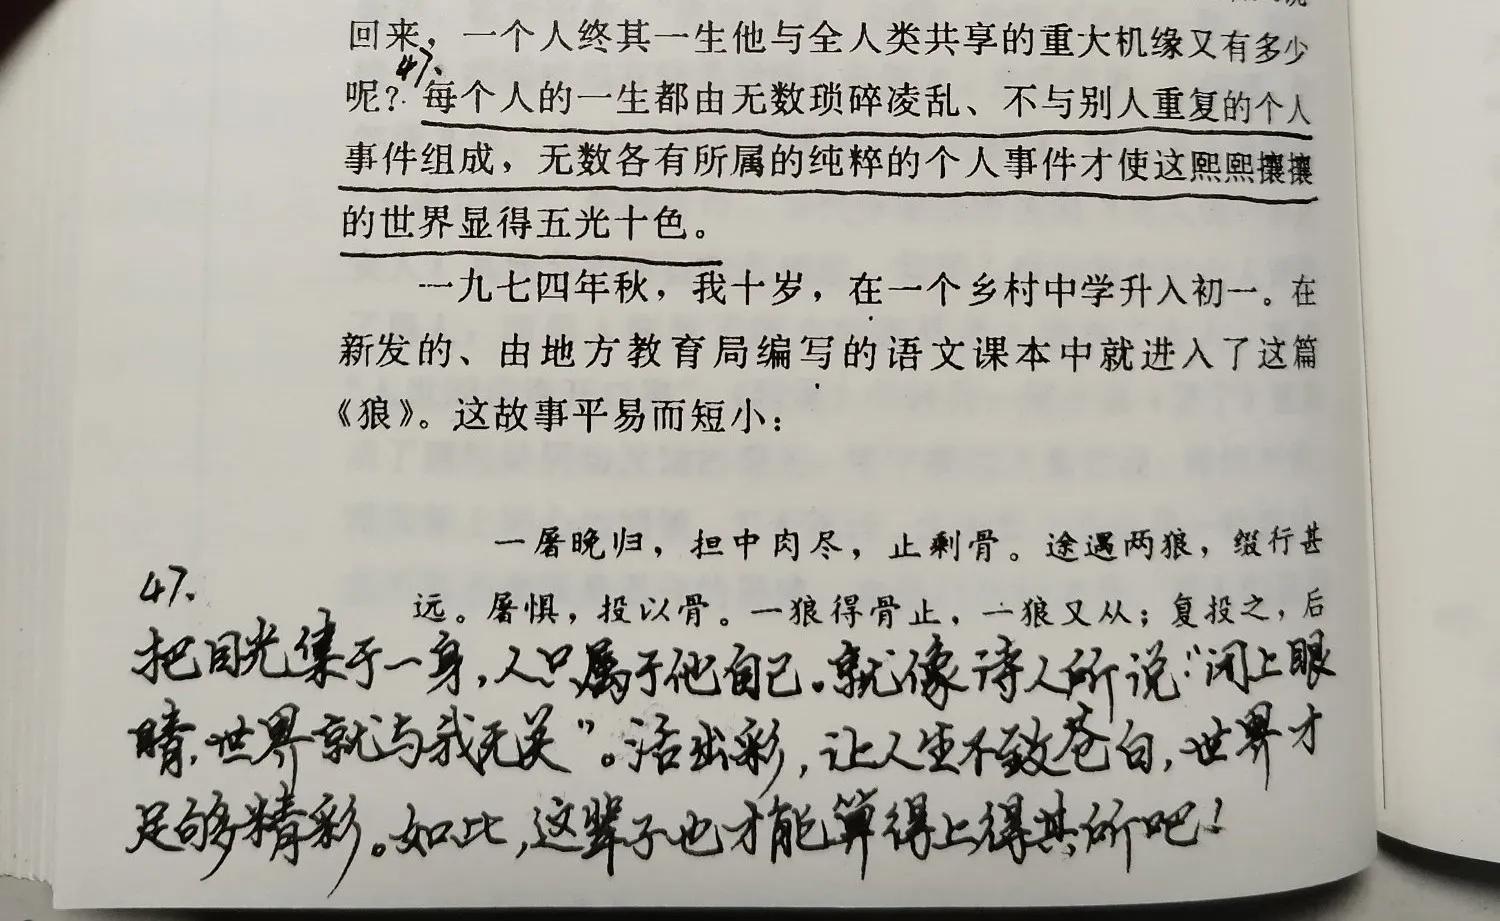 回来，一个人终其一生他与全人类共享的重大机缘又有多少
47.
呢？每个人的一生都由无数琐碎凌乱、不与别人重复的个人
事件组成，无数各有所属的纯粹的个人事件才使这熙熙攘攘
的世界显得五光十色。
一九七四年秋，我十岁，在一个乡村中学升入初一。在
新发的、由地方教育局编写的语文课本中就进入了这篇
《狼》。这故事平易而短小：
一屠晚归，担中肉尽，止剩骨。途遇两狼，缀行甚
远。屠惧，投以骨。一狼得骨止，一狼又从；复投之，后
47.
把目光集于一身，人只属于他自己。就像诗人所说“闭上眼
睛，世界就与我无关”。活出彩，让人生不致苍白，世界才
足够精彩。如此，这辈子也才能算得上得其所吧！